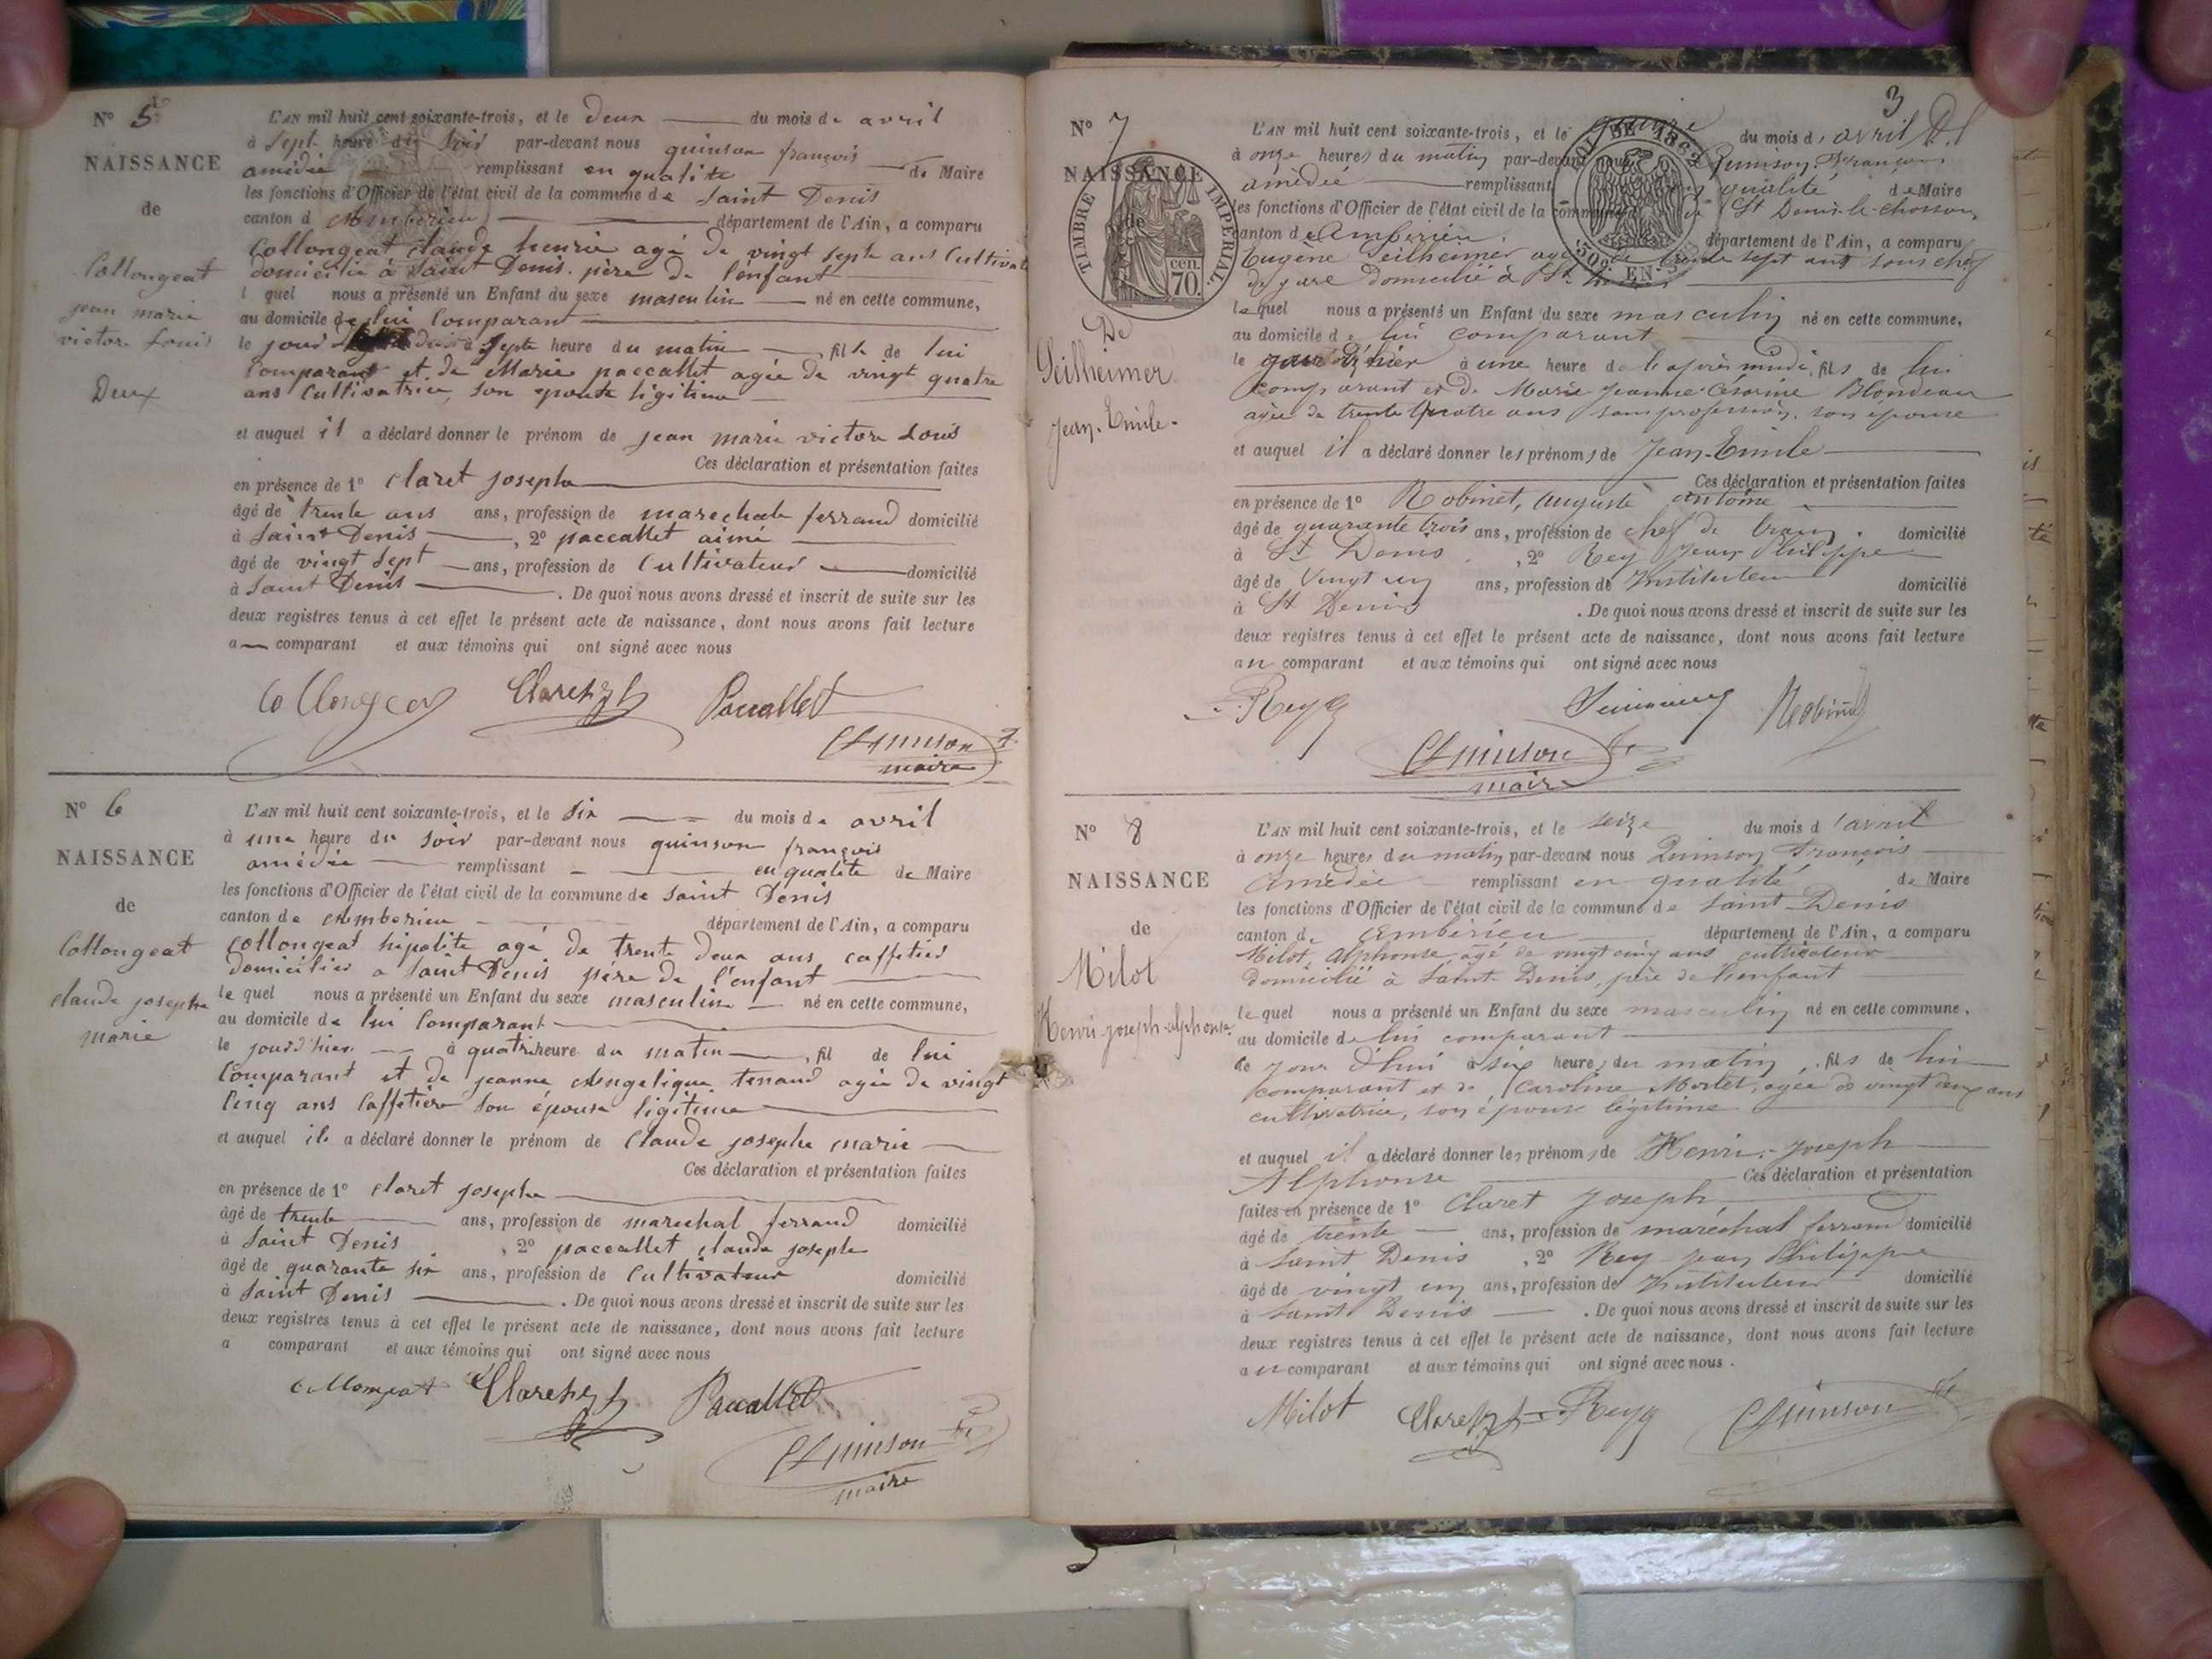 N° 5
NAISSANCE
de
Collongeat
jean marie
victor Louis
Deux
L'AN mil huit cent soixante-trois, et le deux du mois de avril
à sept heure du soir par-devant nous quinson françois
amédée remplissant en qualité de Maire
les fonctions d'Officier de l'état civil de la commune de saint Denis
canton d Amberieu département de l'Ain, a comparu
Collongeat claude henrie agé de vingt sept ans Cultivat
domicilié à saint Denis père de l'enfant
l quel nous a présenté un Enfant du sexe masculin né en cette commune,
au domicile de lui Comparant
le jour à sept heure du matin fils de lui
Comparant et de Marie paccallet agée de vingt quatre
ans Cultivatrice, son epouse ligitime
et auquel il a déclaré donner le prénom de jean marie victore Louis
Ces déclaration et présentation faites
en présence de 1° Claret josephe
âgé de trente ans ans, profession de marechale ferrand domicilié
à saint Denis, 2° paccallet aimé
âgé de vingt sept ans, profession de Cultivateur domicilié
à saint Denis. De quoi nous avons dressé et inscrit de suite sur les
deux registres tenus à cet effet le présent acte de naissance, dont nous avons fait lecture
a comparant et aux témoins qui ont signé avec nous
Collongeat Claret Paccallet
Quinson
maire
N° 6
NAISSANCE
de
Collongeat
claude josephe
marie
L'AN mil huit cent soixante-trois, et le six du mois de avril
à une heure du soir par-devant nous quinson françois
amédée remplissant en qualité de Maire
les fonctions d'Officier de l'état civil de la commune de saint Denis
canton de Amberieu département de l'Ain, a comparu
Collongeat hipolite agé de trente deux ans caffetier
domicilier a saint Denis père de l'enfant
le quel nous a présenté un Enfant du sexe masculin né en cette commune,
au domicile de lui Comparant
le jourd'hier à quatre heure du matin, fil de lui
Comparant et de jeanne Angelique tenand agée de vingt
Cinq ans Caffetiere son épouse ligitime
et auquel il a déclaré donner le prénom de Claude josephe marie
Ces déclaration et présentation faites
en présence de 1° claret josephe
âgé de trente ans, profession de marechal ferrand domicilié
à saint Denis, 2° paccallet claude josephe
âgé de quarante six ans, profession de Cultivateur domicilié
à saint Denis. De quoi nous avons dressé et inscrit de suite sur les
deux registres tenus à cet effet le présent acte de naissance, dont nous avons fait lecture
a comparant et aux témoins qui ont signé avec nous
Collongeat Claret Paccallet
Quinson
maire
3
N° 7
NAISSANCE
de
TIMBRE IMPÉRIAL
70 cen.
De
Seilheimer
Jean-Emile.
L'AN mil huit cent soixante-trois, et le du mois d avril
à onze heures du matin par-devant nous Quinson, François
amédée remplissant en qualité de Maire
les fonctions d'Officier de l'état civil de la commune de St Denis-le-Chosson,
canton de Ambérieu département de l'Ain, a comparu
Eugène Seilheimer agé de trente sept ans sous chef
de gare Domicilié à St Denis
le quel nous a présenté un Enfant du sexe masculin né en cette commune,
au domicile de lui comparant
le hier à une heure de l'après midi, fils de lui
comparant et de Marie Jeanne Césarine Blondeau
agée de trente quatre ans sans profession, son épouse
et auquel il a déclaré donner les prénoms de Jean-Emile
Ces déclaration et présentation faites
en présence de 1° Robinet, Auguste antoine
âgé de quarante trois ans, profession de chef de train domicilié
à St Denis, 2° Rey Jean Philippe
âgé de Vingt un ans, profession de Instituteur domicilié
à St Denis. De quoi nous avons dressé et inscrit de suite sur les
deux registres tenus à cet effet le présent acte de naissance, dont nous avons fait lecture
au comparant et aux témoins qui ont signé avec nous
Rey Robinet
Quinson
maire
N° 8
NAISSANCE
de
Milot
Henri-joseph-alphonse
L'AN mil huit cent soixante-trois, et le seize du mois d'avril
à onze heures du matin par-devant nous Quinson François
Amédée remplissant en qualité de Maire
les fonctions d'Officier de l'état civil de la commune de Saint Denis
canton de Ambérieu département de l'Ain, a comparu
Milot, Alphonse, agé de vingt cinq ans cultivateur
domicilié à Saint-Denis, père de l'enfant
le quel nous a présenté un Enfant du sexe masculin né en cette commune,
au domicile de lui comparant
ce jour d'hui à six heure du matin, fils de lui
comparant et de Caroline Morlet, agée de vingt deux ans
cultivatrice, son épouse légitime
et auquel il a déclaré donner les prénoms de Henri-Joseph
Alphonse Ces déclaration et présentation
faites en présence de 1° Claret Joseph,
âgé de trente ans, profession de maréchal ferrand domicilié
à Saint Denis, 2° Rey Jean Philippe
âgé de vingt un ans, profession de Instituteur domicilié
à Saint Denis. De quoi nous avons dressé et inscrit de suite sur les
deux registres tenus à cet effet le présent acte de naissance, dont nous avons fait lecture
au comparant et aux témoins qui ont signé avec nous.
Milot Claret Rey Quinson